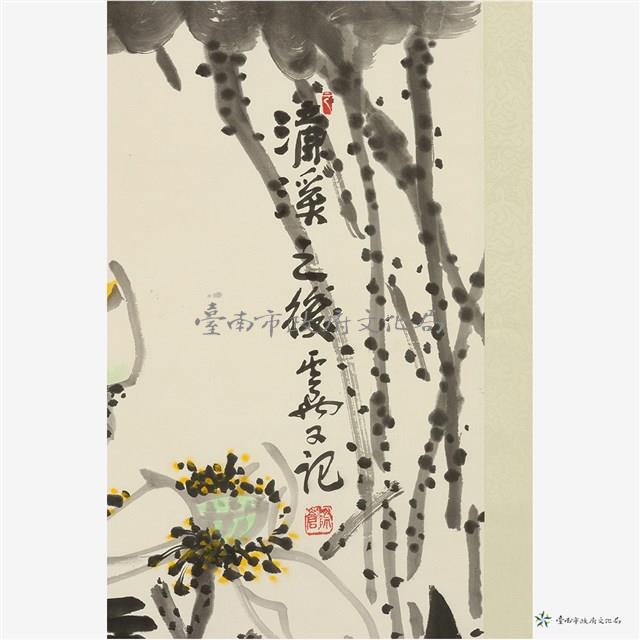 濂溪之後
又記
臺南市政府文化局
臺南市政府文化局